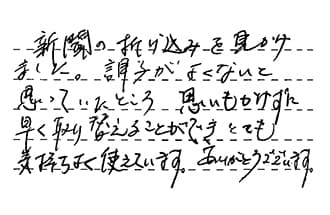 新聞の折り込みを見かけ
ました。調子がよくないと
思っていたところ 思いもかけずに
早く取り替えることができとても
気持ちよく使えています。ありがとうございます。